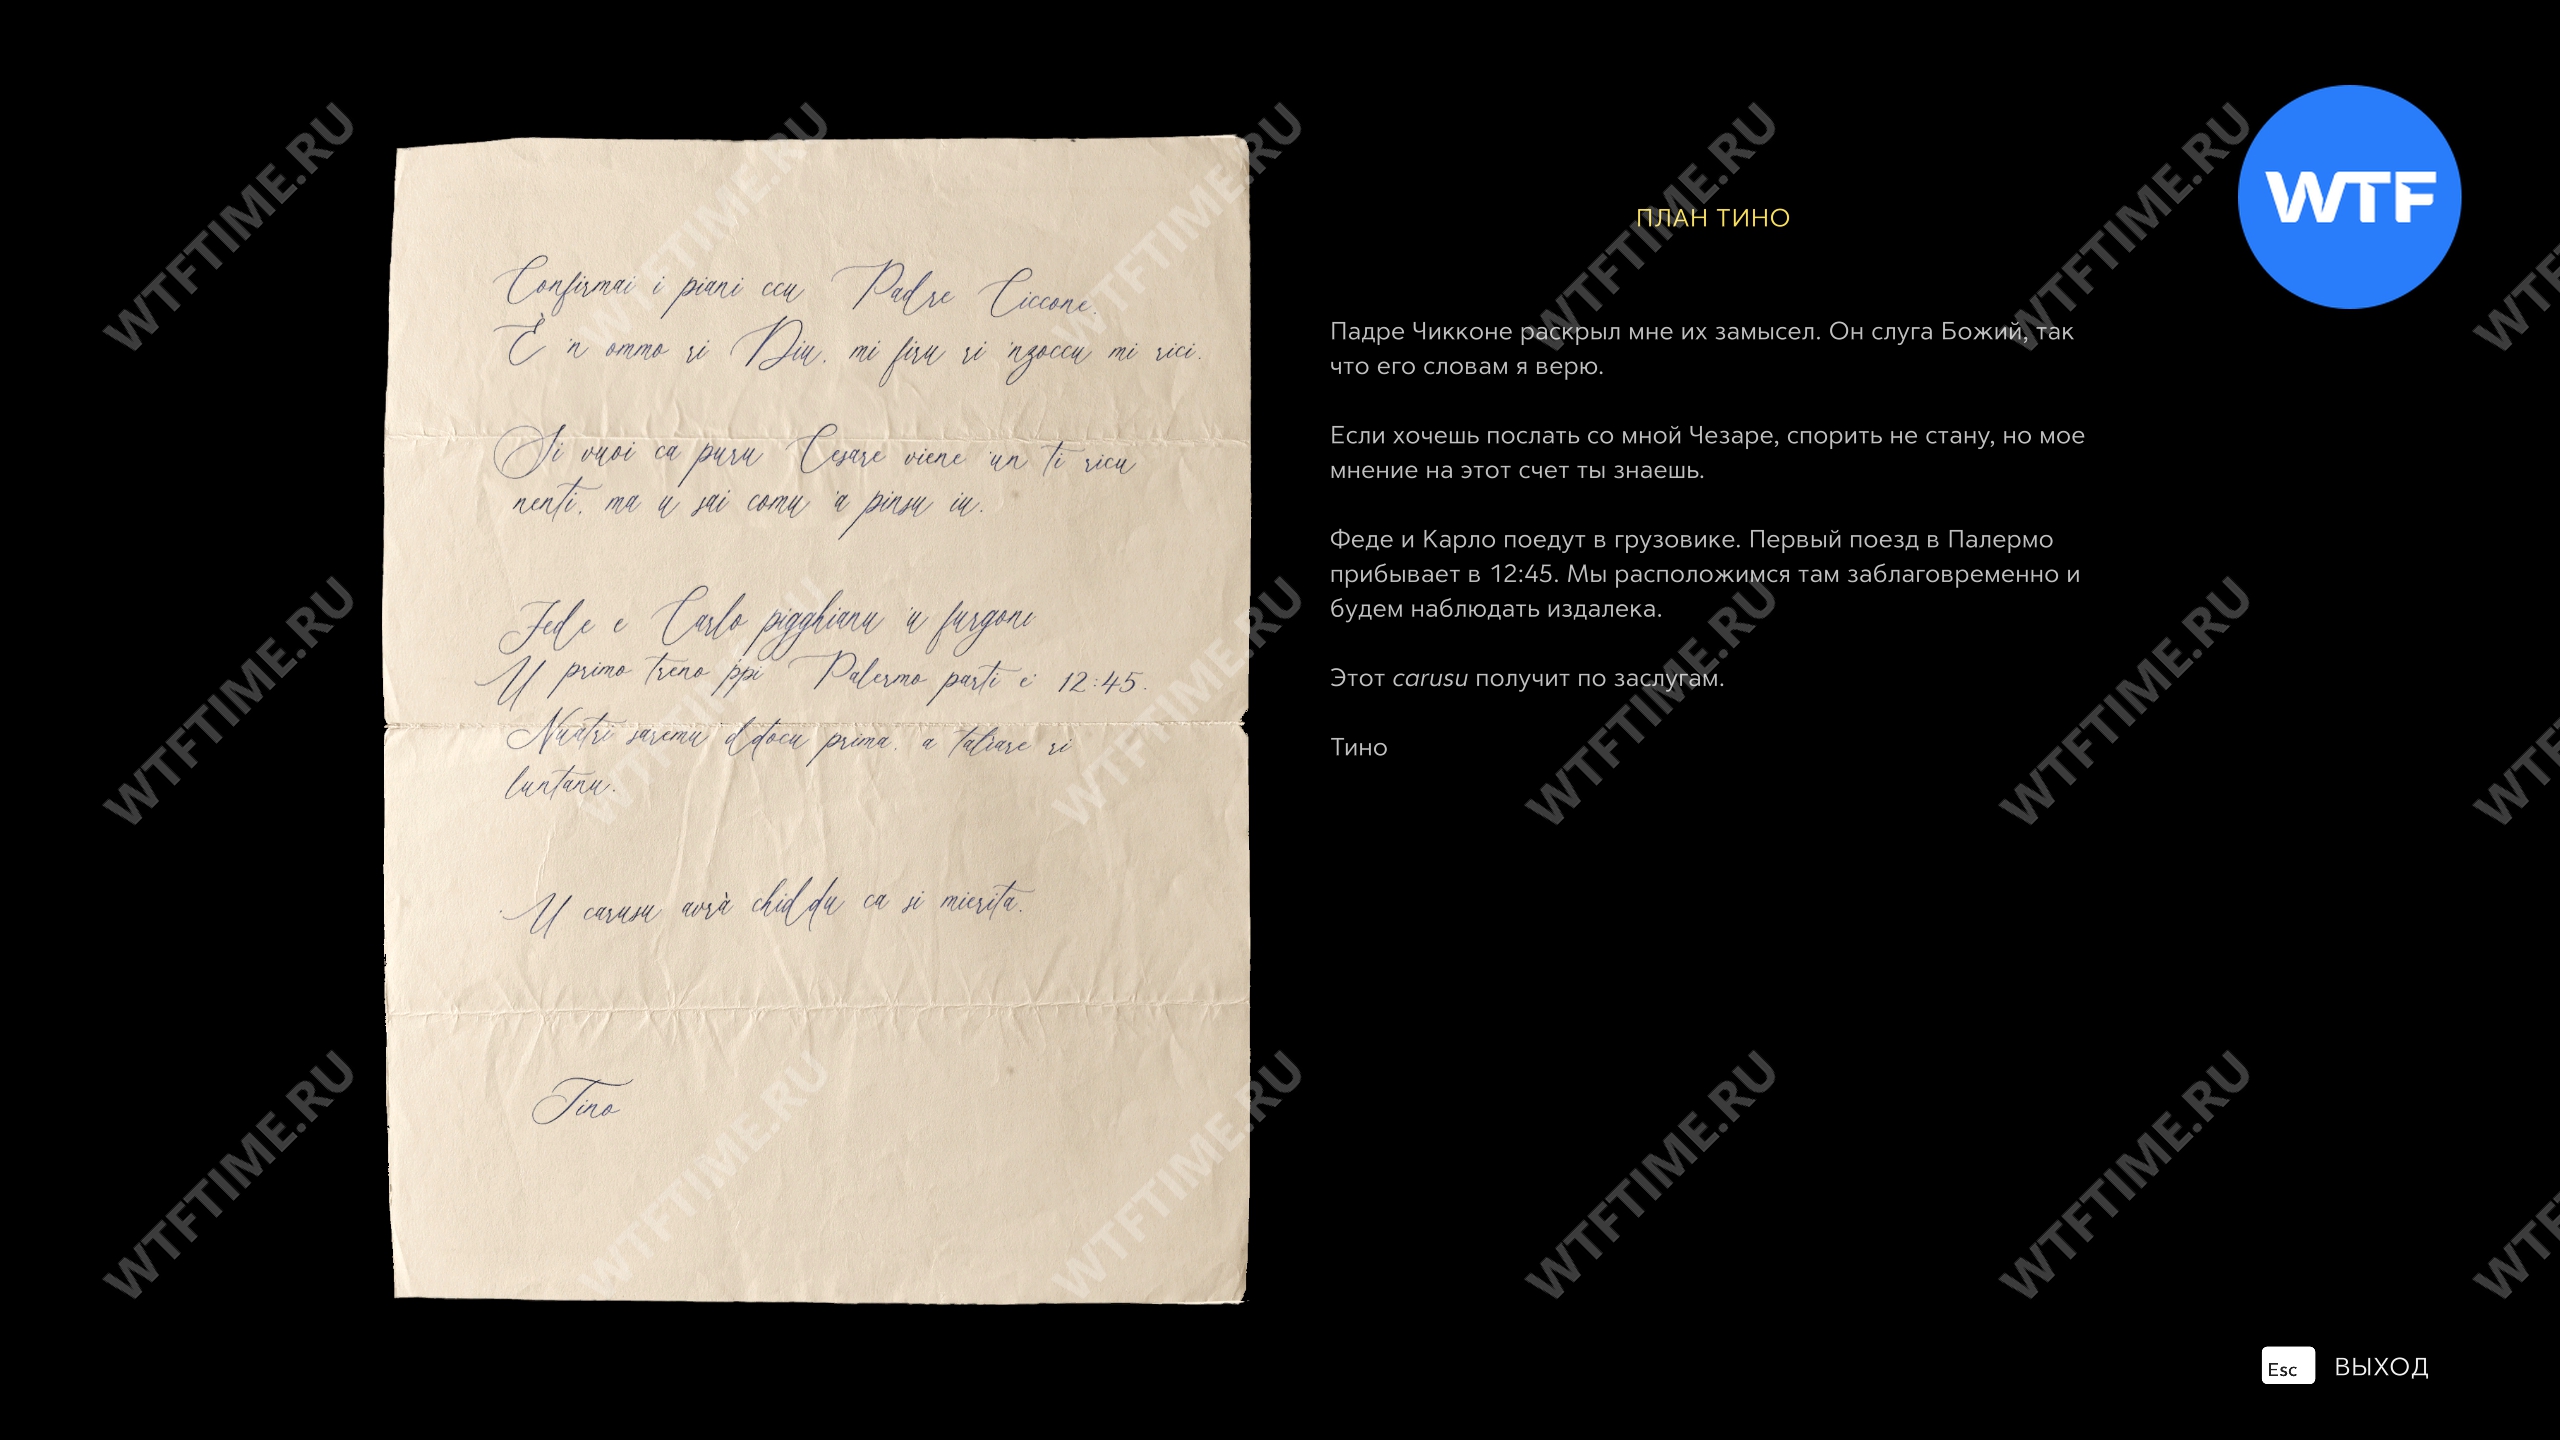 Confirmai i piani ccu Padre Ciccone.
È 'n ommo ri Diu, mi firu ri 'nzoccu mi rici.
Si vuoi ca puru Cesare viene 'un ti ricu
nenti, ma u sai comu 'a pinsu iu.
Fede e Carlo pigghianu 'u furgone
U primo treno ppi Palermo parti e' 12:45.
Nuatri saremu ddocu prima, a taliare ri
luntanu.
U carusu avrà chiddu ca si mierita.
Tino
ПЛАН ТИНО
Падре Чикконе раскрыл мне их замысел. Он слуга Божий, так
что его словам я верю.
Если хочешь послать со мной Чезаре, спорить не стану, но мое
мнение на этот счет ты знаешь.
Феде и Карло поедут в грузовике. Первый поезд в Палермо
прибывает в 12:45. Мы расположимся там заблаговременно и
будем наблюдать издалека.
Этот carusu получит по заслугам.
Тино
WTF
Esc ВЫХОД
WTFTIME.RU